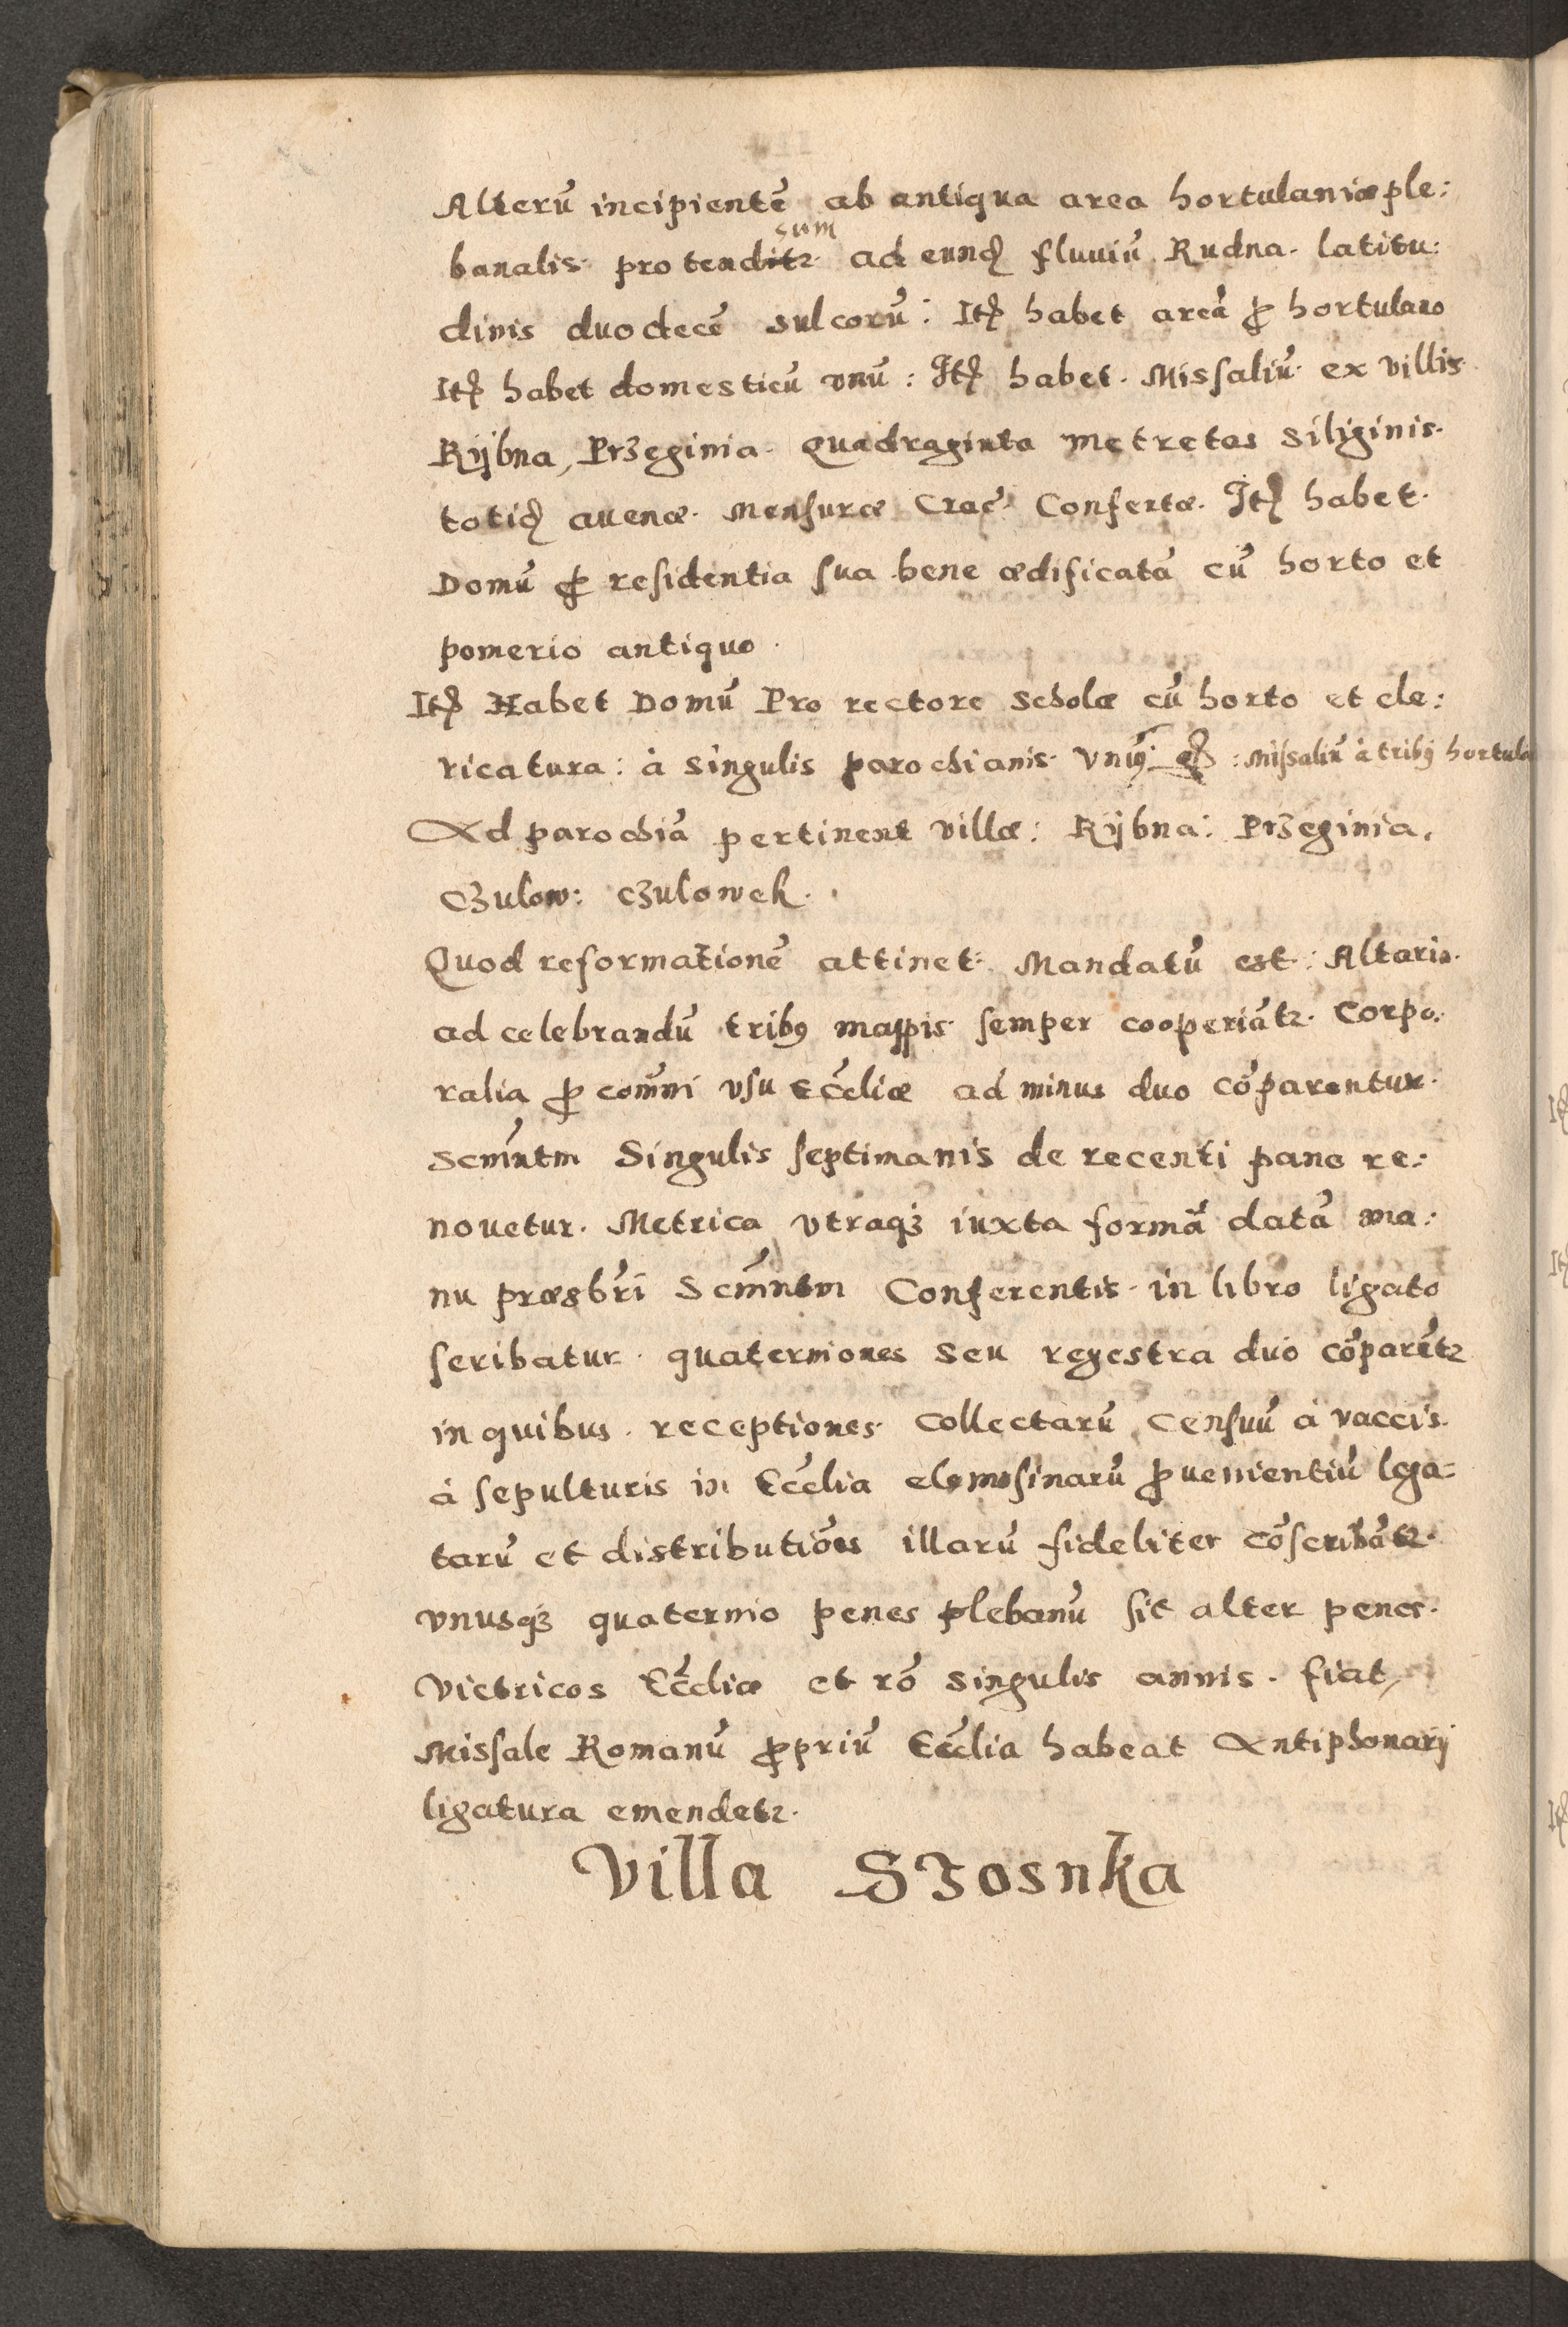 Alterũ incipientẽ ab antiqua area hortulaniæ ple:
banalis protenditr sum ad eund fluuiũ Rudna. latitu:
dinis duodecẽ sulcorũ: Itẽ habet areã pro hortulano
Itẽ habet domesticũ vnũ: Itẽ habet. Missaliũ ex villis
Rÿbna, Przeginia. Quadraginta metretas siliginis.
totid auenæ. Mensuræ Crac̃. Confertæ. Itẽ habet.
Domũ pro residentia sua bene ædificatã cũ horto et
pomerio antiquo.
Itẽ Habet Domũ Pro rectore scholæ cũ horto et cle:
ricatura: à singulis parochianis. Vnũ : Missaliũ à tribꝰ hortula
Ad parochiã pertinent villæ: Rÿbna: Przeginia,
Czulow: Czulowek.
Quod reformationẽ attinet: Mandatũ est: Altaria.
ad celebrandũ tribꝰ mappis semper cooperiãtr. Corpo:
ralia pro com̃ni vsu Ecc̃liæ ad minus duo cõparentur.
Scm̃ntm Singulis septimanis de recenti pane re:
nouetur. Metrica vtraqꝫ iuxta formã datã ma:
nu præsbr̃i Scm̃ntm Conferentis. in libro ligato
scribatur. quaterniones seu regestra duo cõparẽtr
in quibus. receptiones. Collectarũ Censuũ à vaccis.
à sepulturis in Ecc̃lia elemosinarũ prouenientiũ lega=
tarũ et distributiões illarũ fideliter cõscribãtr.
vnusqꝫ quaternio penes plebanũ sit alter penes.
Victricos Ecc̃liæ et rõ singulis annis. fiat,
Missale Romanũ propriũ Ecc̃lia habeat Antiphonarij
ligatura emendetr.
Villa Szosnka